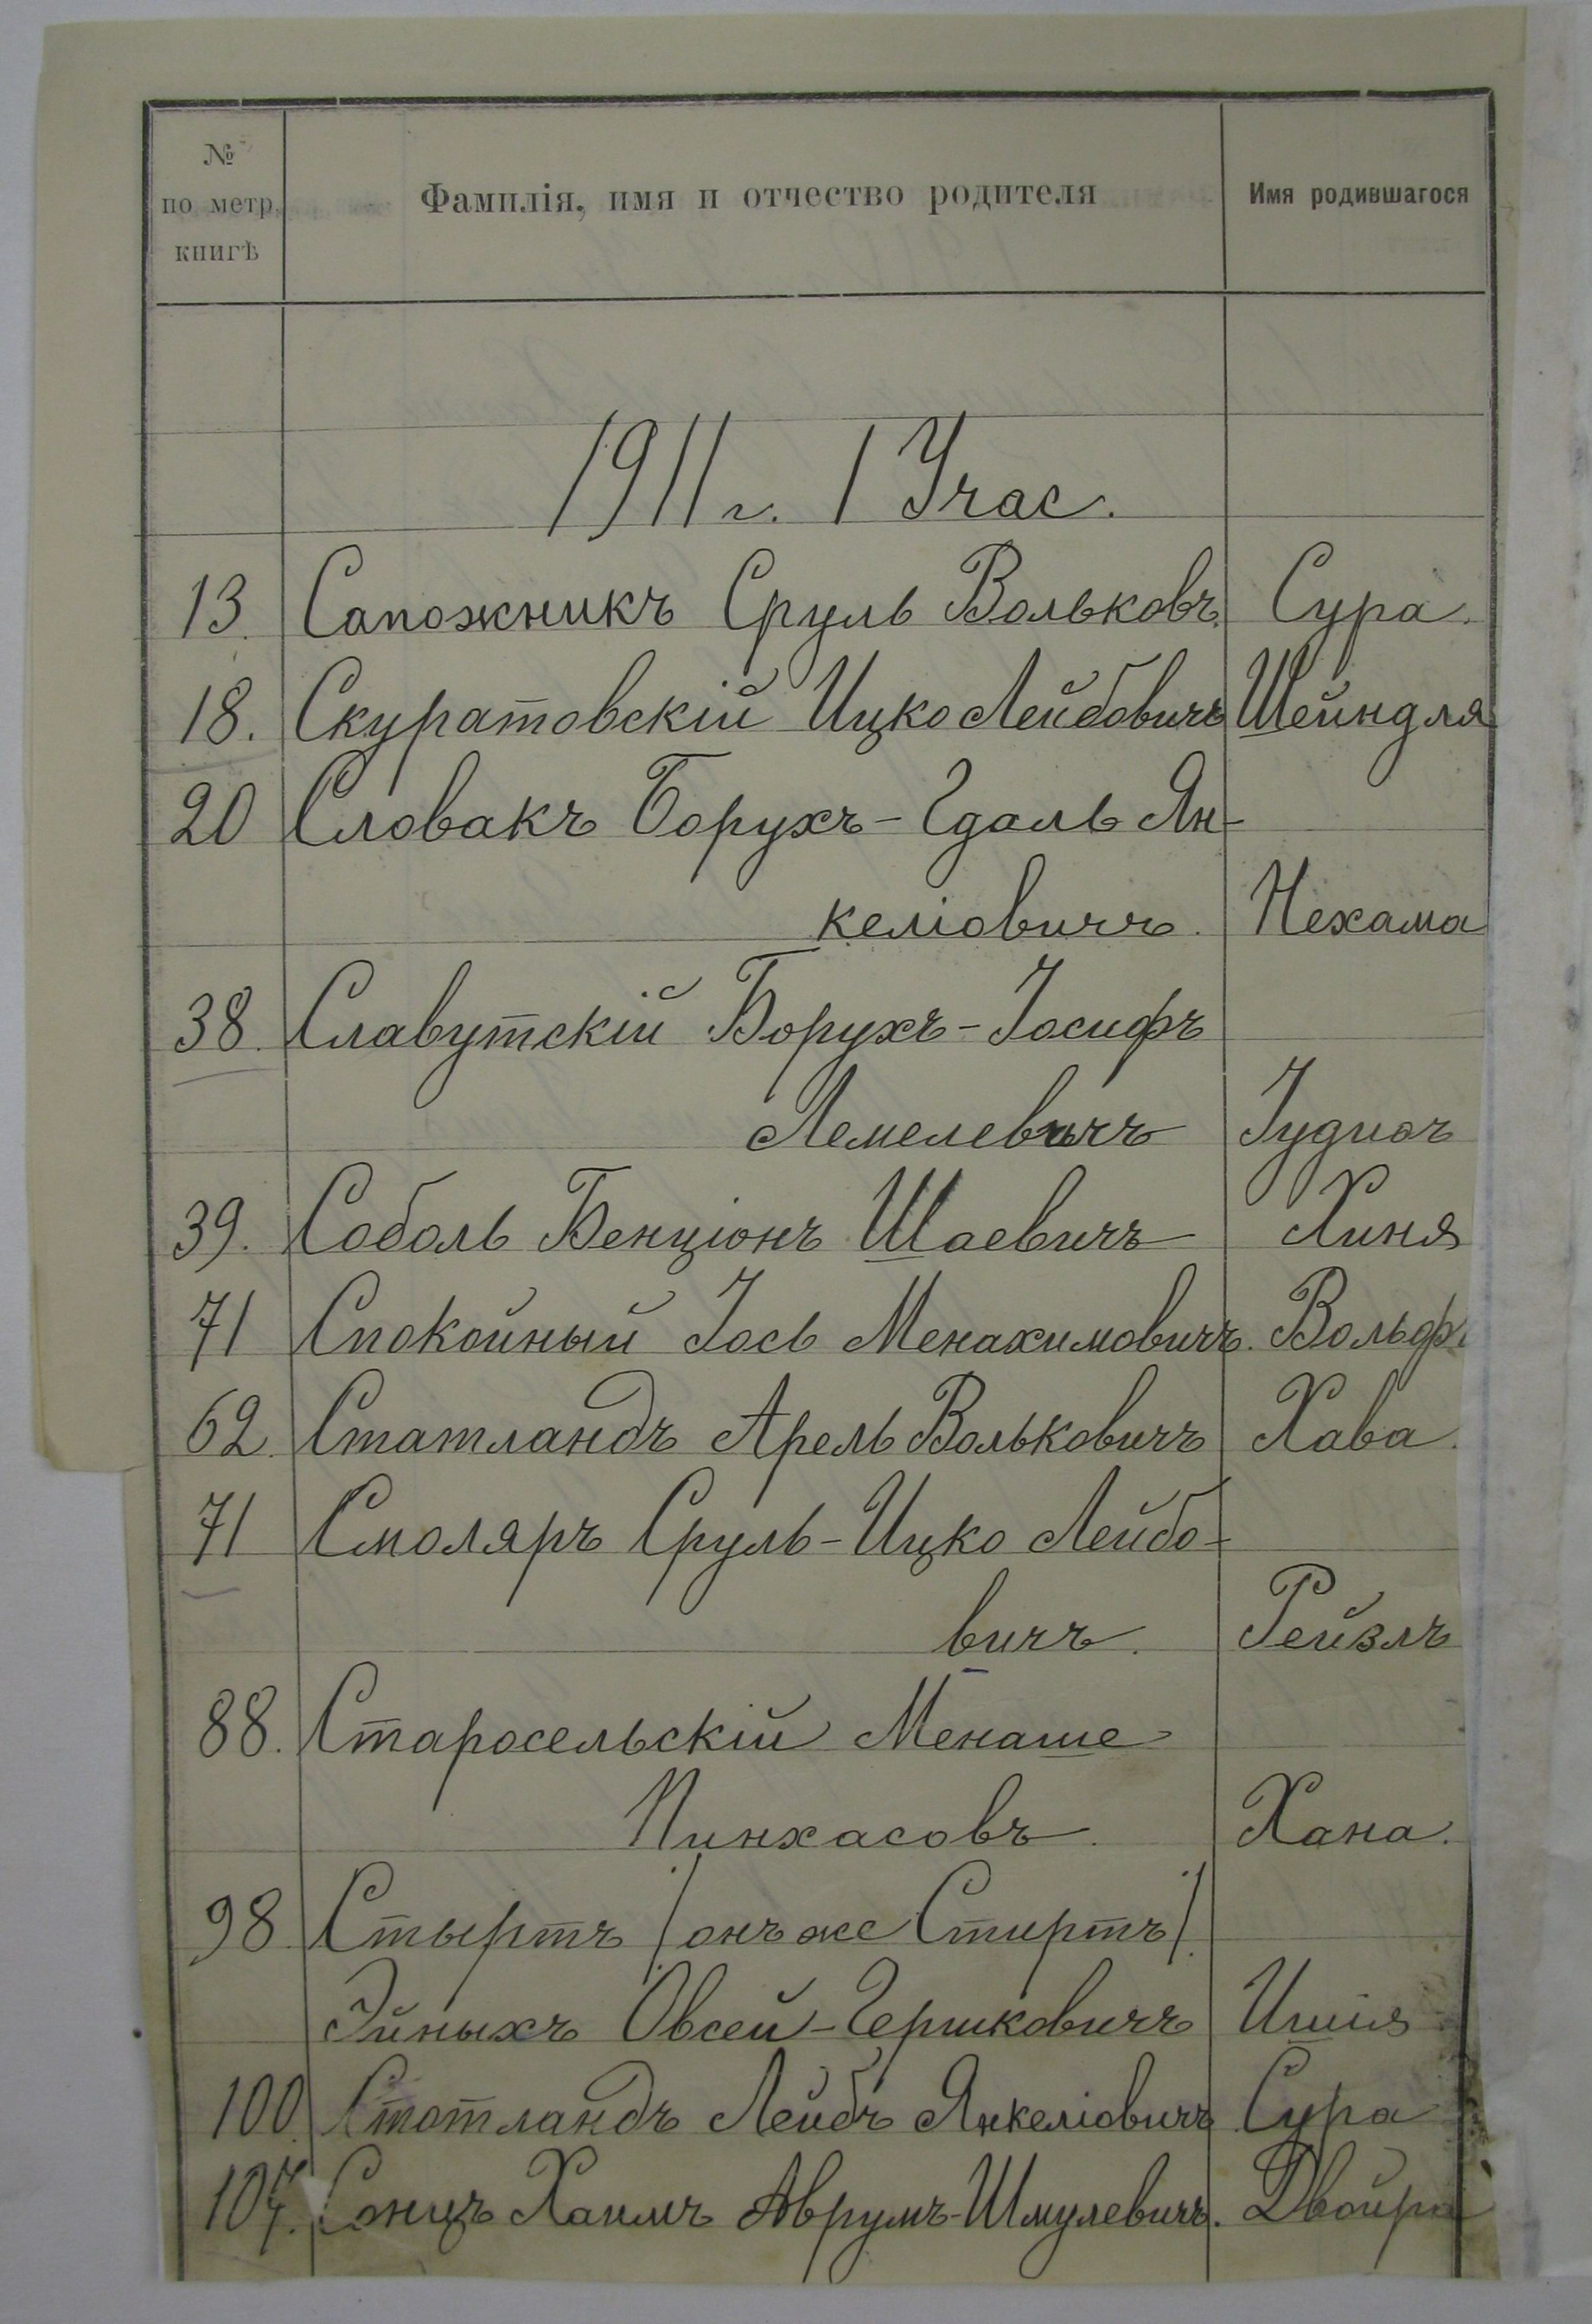 №
по метр.
книгѣ
Фамилія, имя и отчество родителя
Имя родившагося
1911 г. 1 Учас.
13. Сапожникъ Сруль Вольковъ. Сура.
18. Скуратовскій Ицко Лейбовичъ Шейндля
20 Словакъ Борухъ-Гдаль Ян-
келіовичъ. Нехама
38. Славутскій Борухъ-Іосифъ
Лемелевичъ Іудисъ
39. Соболь Бенціонъ Шаевичъ Хиня
71 Спокойный Іось Менахимовичъ. Вольфъ
62. Статландъ Арель Вольковичъ Хава.
71 Смоляръ Сруль-Ицко Лейбо-
вичъ. Рейзлъ
88. Старосельскій Менаше
Пинхасовъ. Хана.
98 Стыртъ /онъ же Стиртъ/
Эйныхъ Овсей-Гершковичъ Ишія
100. Стотландъ Лейбъ Янкеліовичъ Сура
107. Хаимъ Аврумъ-Шмулевичъ. Двойра